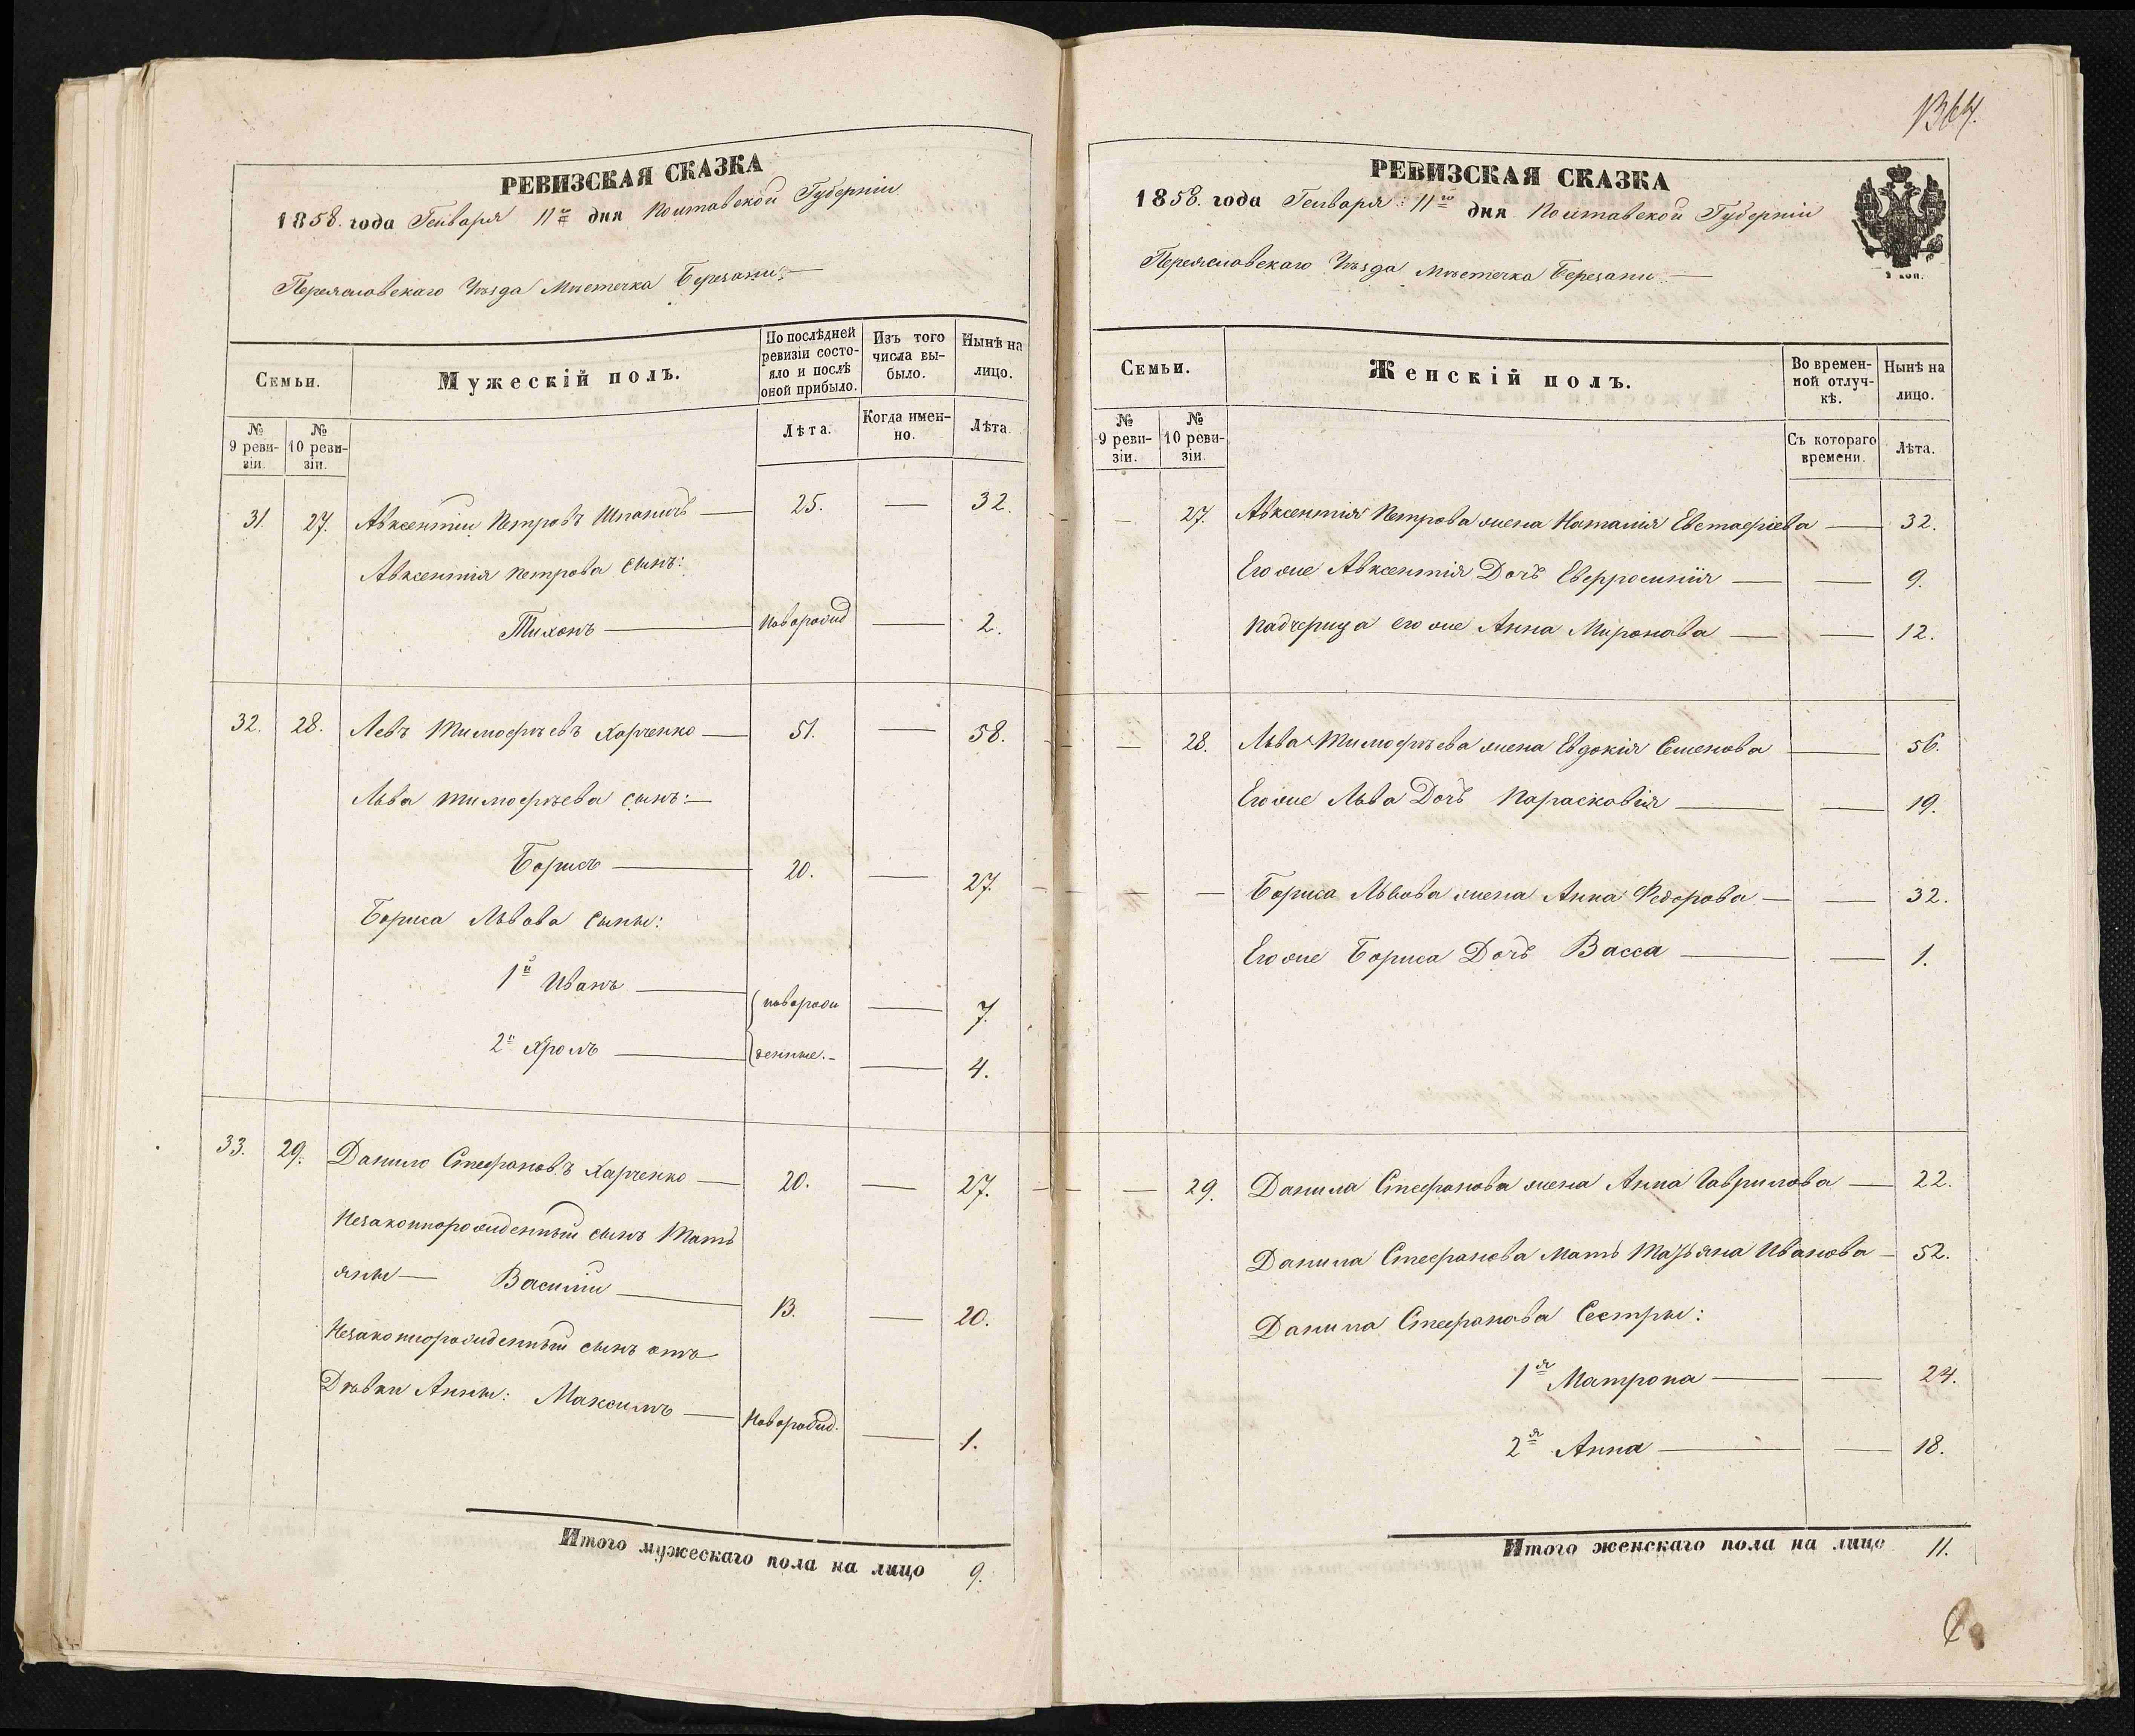 РЕВИЗСКАЯ СКАЗКА
1858. года Генваря 11го дня Полтавской Губерніи
Переяславскаго Уѣзда Мѣстечка Березани:—
Семьи.
Мужескій полъ.
По послѣдней ревизіи состояло и послѣ оной прибыло.
Изъ того числа выбыло.
Нынѣ на лицо.
№ 9 ревизіи.
№ 10 ревизіи.
Лѣта.
Когда именно.
Лѣта.
31. 27. Авксентій Петровъ — 25. — 32.
Авксентія Петрова сынъ:
Тихонъ — новорожд — 2.
32. 28. Левъ Тимофѣевъ Харченко — 51. — 58.
Льва Тимофѣева сынъ:—
Борисъ — 20. — 27.
Бориса Львова сыны:
1й Иванъ — новорож — 7.
2й Фролъ — денные.- — 4.
33. 29. Данило Стефановъ Харченко — 20. — 27.
Незаконнорожденный сынъ Тать
яны — Василій — 13. — 20.
Незаконнорожденный сынъ отъ
Дѣвки Анны: Максимъ — Новорожд. — 1.
Итого мужескаго пола на лицо 9.
1364.
РЕВИЗСКАЯ СКАЗКА
1858. года Генваря: 11го дня Полтавской Губерніи
Переяславскаго Уѣзда Мѣстечка Березани:—
2 коп.
Семьи.
Женскій полъ.
Во временной отлучкѣ.
Нынѣ на лицо.
№ 9 ревизіи.
№ 10 ревизіи.
Съ котораго времени.
Лѣта.
— 27. Авксентія Петрова жена Наталія Евстафіева — 32.
Его же Авксентія Дочь Евфросинія — — 9.
Падчерица его же Анна Миронова — — 12.
— 28. Льва Тимофѣева жена Евдокія Семенова — 56.
Его же Льва Дочь Парасковія — — 19.
— — Бориса Львова жена Анна Федорова — — 32.
Его же Бориса Дочь Васса — — 1.
— 29. Данила Стефанова жена Анна Гаврилова — 22.
Данила Стефанова Мать Татьяна Иванова — 52.
Данила Стефанова Сестры:
1я Матрона — — 24.
2я Анна — — 18.
Итого женскаго пола на лицо 11.